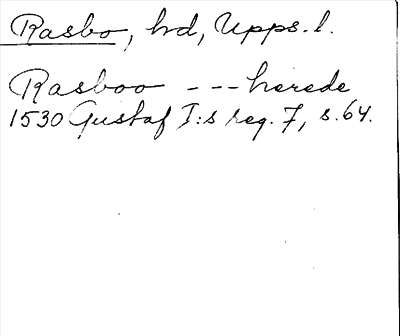 Rasbo, hd, Upps. l.
Rasboo --- herede
1530 Gustaf I:s reg. 7, s. 64.